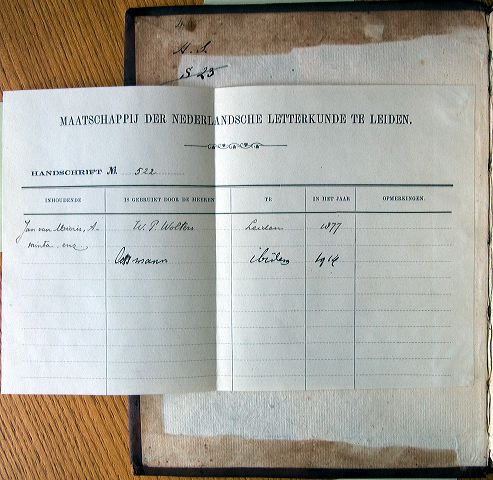 4
H. S.
S 23
MAATSCHAPPIJ DER NEDERLANDSCHE LETTERKUNDE TE LEIDEN.
HANDSCHRIFT No. 522
INHOUDENDE IS GEBRUIKT DOOR DE HEEREN TE IN HET JAAR OPMERKINGEN.
Jan van Mieris, A- W. P. Wolters Leiden 1877
minta enz
ibidem 1914